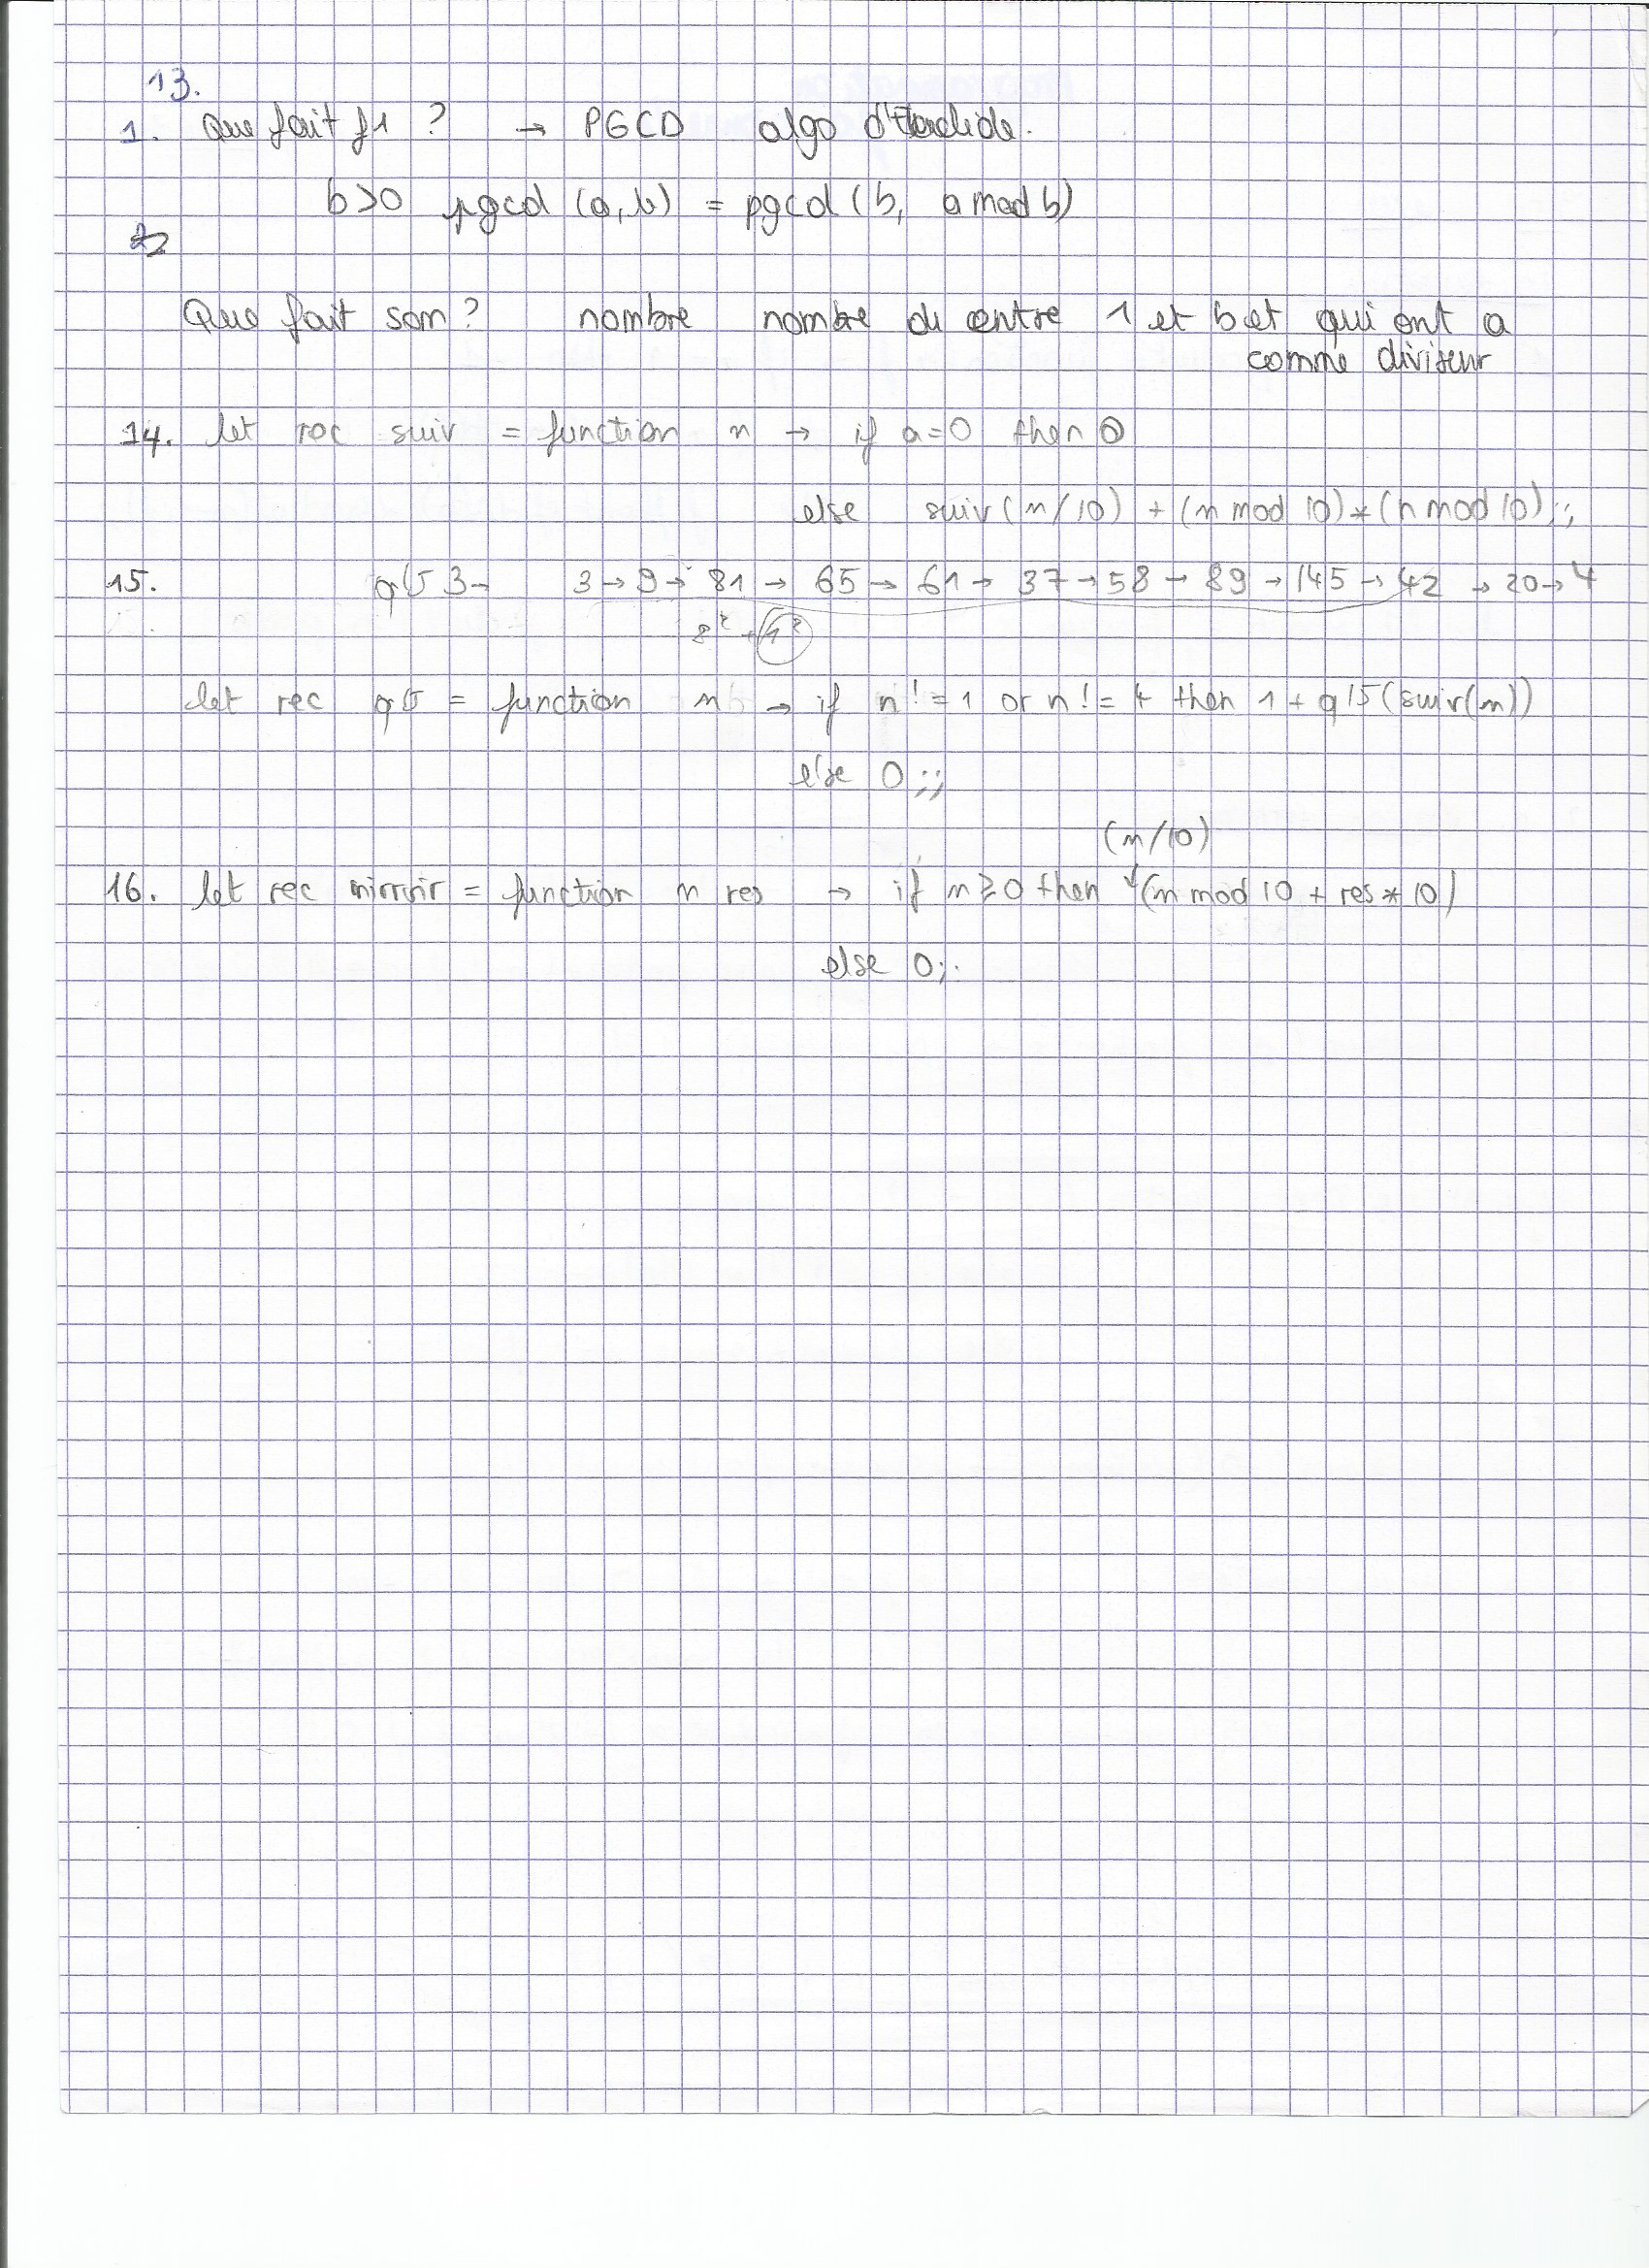 13.
1. Que fait f1 ? → PGCD algo d'Euclide.
b>0 pgcd (a,b) = pgcd (b, a mod b)
2
Que fait som ? nombre nombre di entre 1 et b et qui ont a
comme diviseur
14. let rec suiv = function n → if a=0 then 0
else suiv (n/10) + (n mod 10)*(n mod 10);;
15. q15 3- 3→9→81→65→61→37→58→89→145→42→20→4
8² + 1²
let rec q15 = function n → if n!=1 or n!=4 then 1 + q15(suiv(n))
else 0;;
(n/10)
16. let rec mirroir = function n res → if n≥0 then (n mod 10 + res*10)
else 0;.